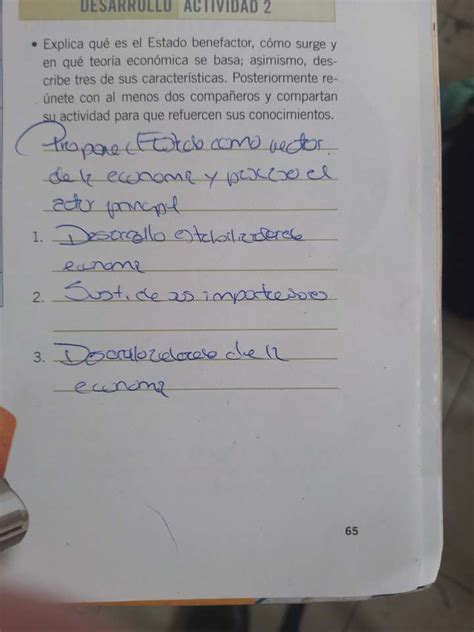 DESARROLLO ACTIVIDAD 2
• Explica qué es el Estado benefactor, cómo surge y
en qué teoría económica se basa; asimismo, des-
cribe tres de sus características. Posteriormente re-
únete con al menos dos compañeros y compartan
su actividad para que refuercen sus conocimientos.
Propone Estado como rector
de la econome y el
actor principal
1. Desarrollo
economa
2. Sust. de las importaciones
3. de la
economa
65